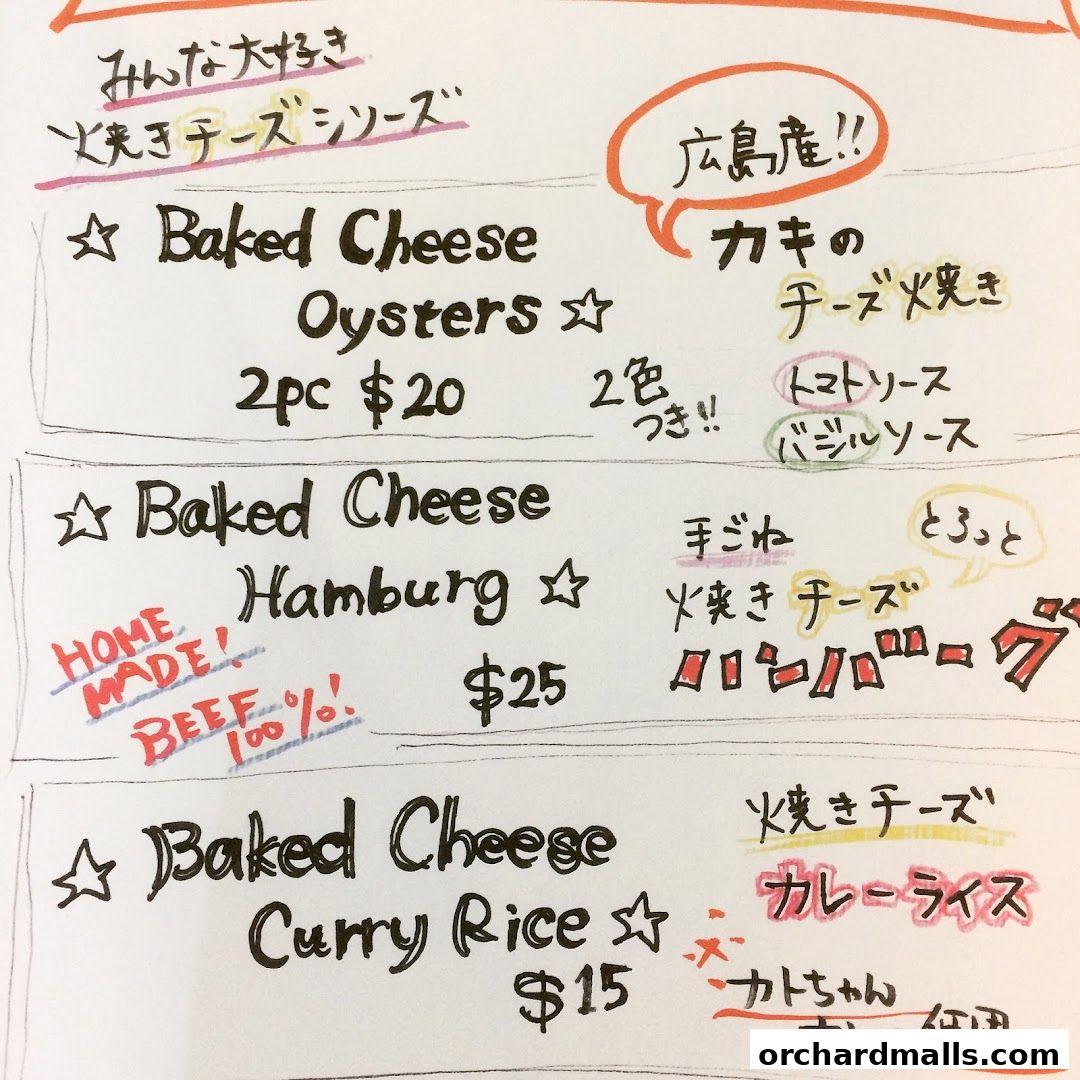 みんな大好き
焼きチーズシリーズ
広島産!!
☆ Baked Cheese
Oysters ☆
2pc $20
カキの
チーズ焼き
2色
つき!!
トマトソース
バジルソース
☆ Baked Cheese
Hamburg ☆
$25
HOME
MADE!
BEEF
100%!
手ごね
とろっと
焼きチーズ
ハンバーグ
☆ Baked Cheese
Curry Rice ☆
$15
焼きチーズ
カレーライス
カトちゃん
orchardmalls.com